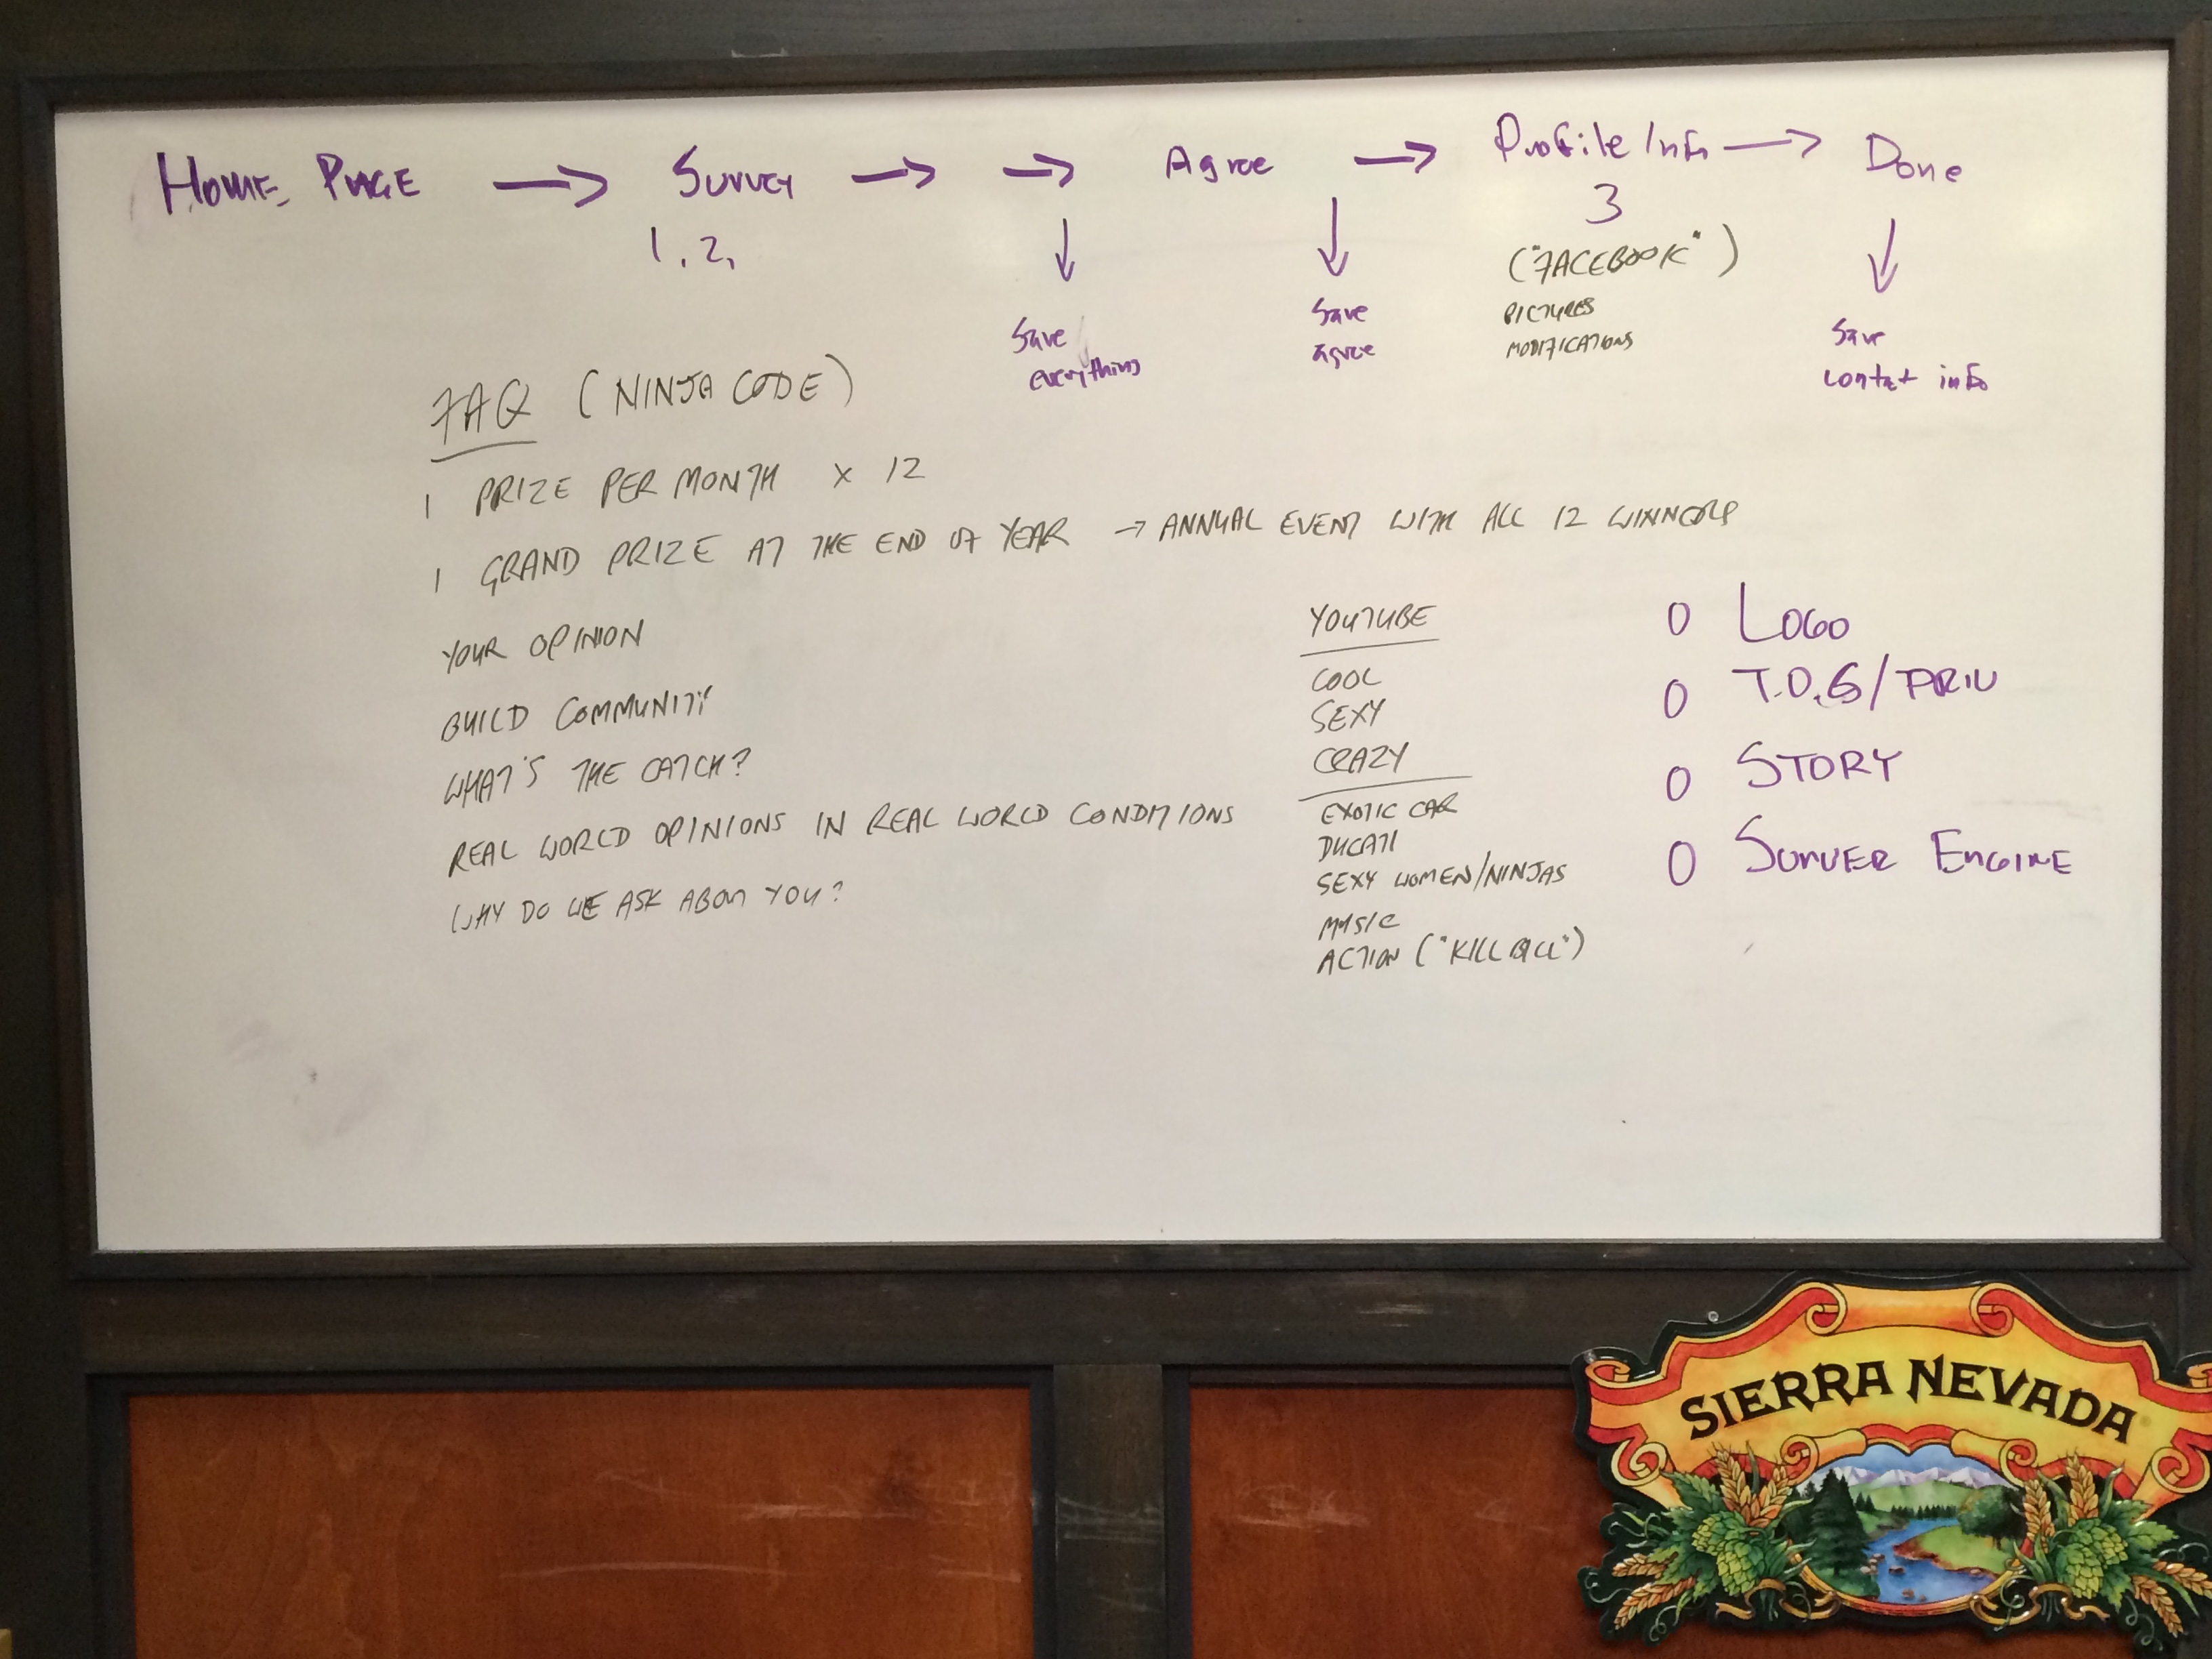 Home Page → Survey → → Agree → Profile Info → Done
1, 2,
3
("FACEBOOK")
PICTURES
MODIFICATIONS
↓ Save everything
↓ Save agree
↓ Save contat info
FAQ (NINJA CODE)
1 PRIZE PER MONTH X 12
1 GRAND PRIZE AT THE END OF YEAR → ANNUAL EVENT WITH ALL 12 WINNERS
YOUR OPINION
BUILD COMMUNITY
WHAT'S THE CATCH?
REAL WORLD OPINIONS IN REAL WORLD CONDITIONS
WHY DO WE ASK ABOUT YOU?
YOUTUBE
COOL
SEXY
CRAZY
EXOTIC CAR
DUCATI
SEXY WOMEN/NINJAS
MUSIC
ACTION ("KILL BILL")
0 LOGO
0 T.O.S/PRIV
0 STORY
0 SURVER ENGINE
SIERRA NEVADA